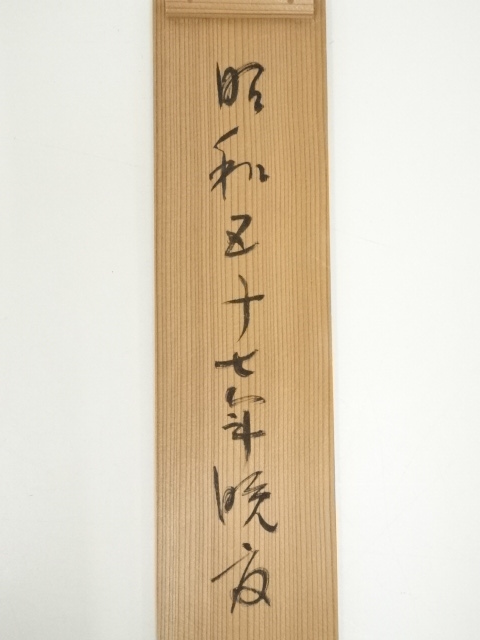 昭和五十七年晩夏